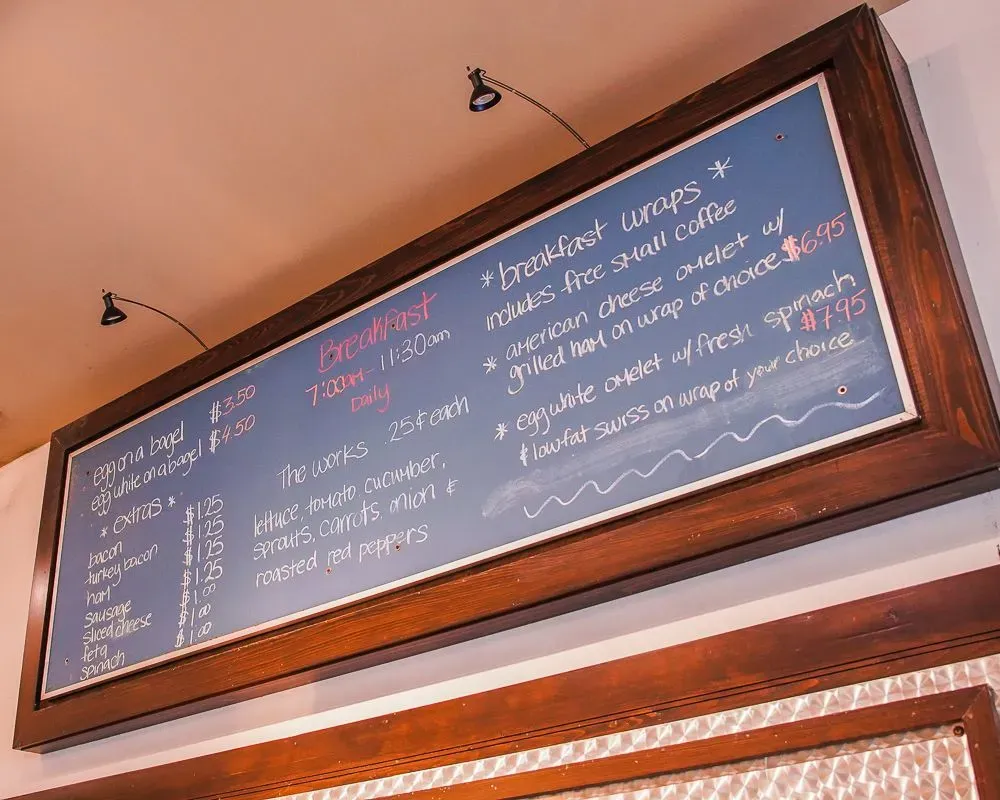 egg on a bagel $3.50
egg white on a bagel $4.50
* extras *
bacon $1.25
turkey bacon $1.25
ham $1.25
sausage $1.25
sliced cheese $1.00
feta $1.00
spinach $1.00
Breakfast
7:00am - 11:30am
Daily
The works .25¢ each
lettuce, tomato, cucumber,
sprouts, carrots, onion &
roasted red peppers
* breakfast wraps *
includes free small coffee
* american cheese omelet w/
grilled ham on wrap of choice $6.95
* egg white omelet w/ fresh spinach
& lowfat swiss on wrap of your choice $7.95